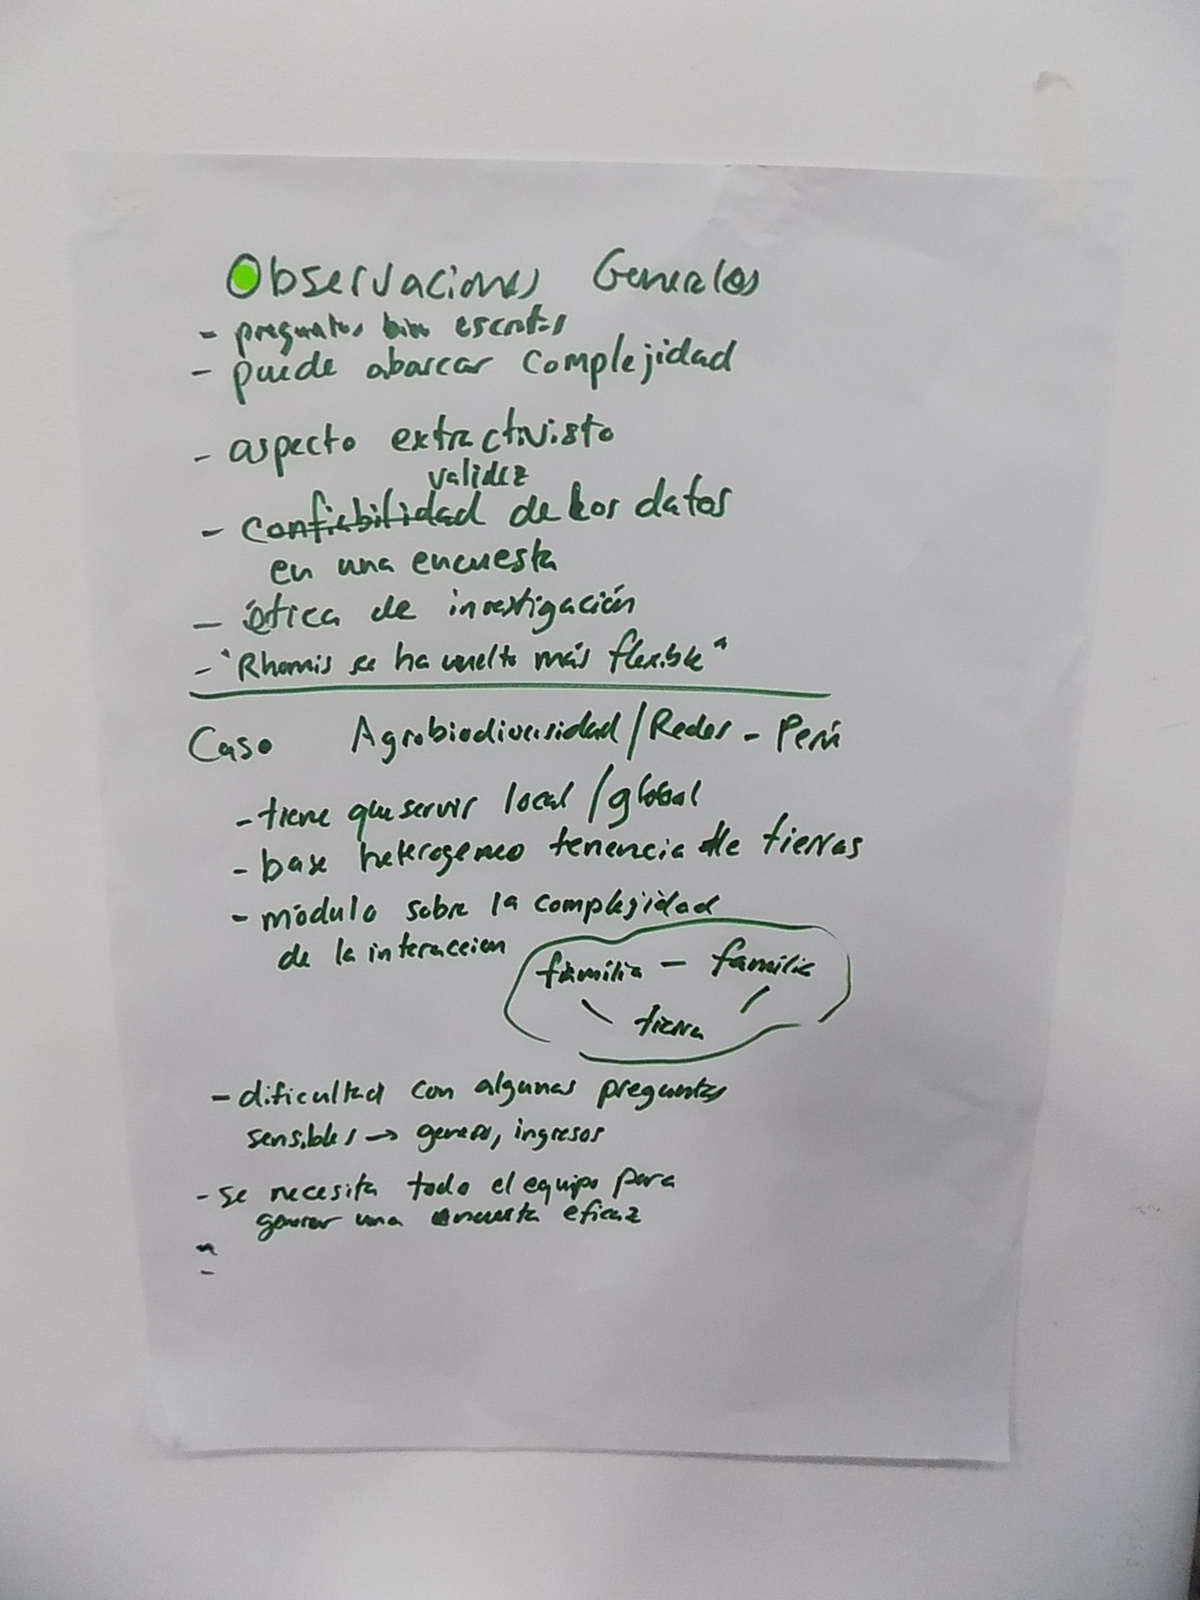 Observaciones Generales
- preguntas bien escritas
- puede abarcar complejidad
- aspecto extractivista
validez
- confiabilidad de los datos
en una encuesta
- ética de investigación
- "Rhomis se ha vuelto más flexible"
Caso Agrobiodiversidad/Redes - Perú
- tiene que servir local/global
- base heterogeneo tenencia de tierras
- módulo sobre la complejidad
de la interaccion
familia - familia
tierra
- dificultad con algunas preguntas
sensibles → genero, ingresos
- se necesita todo el equipo para
generar una encuesta eficaz
-
-